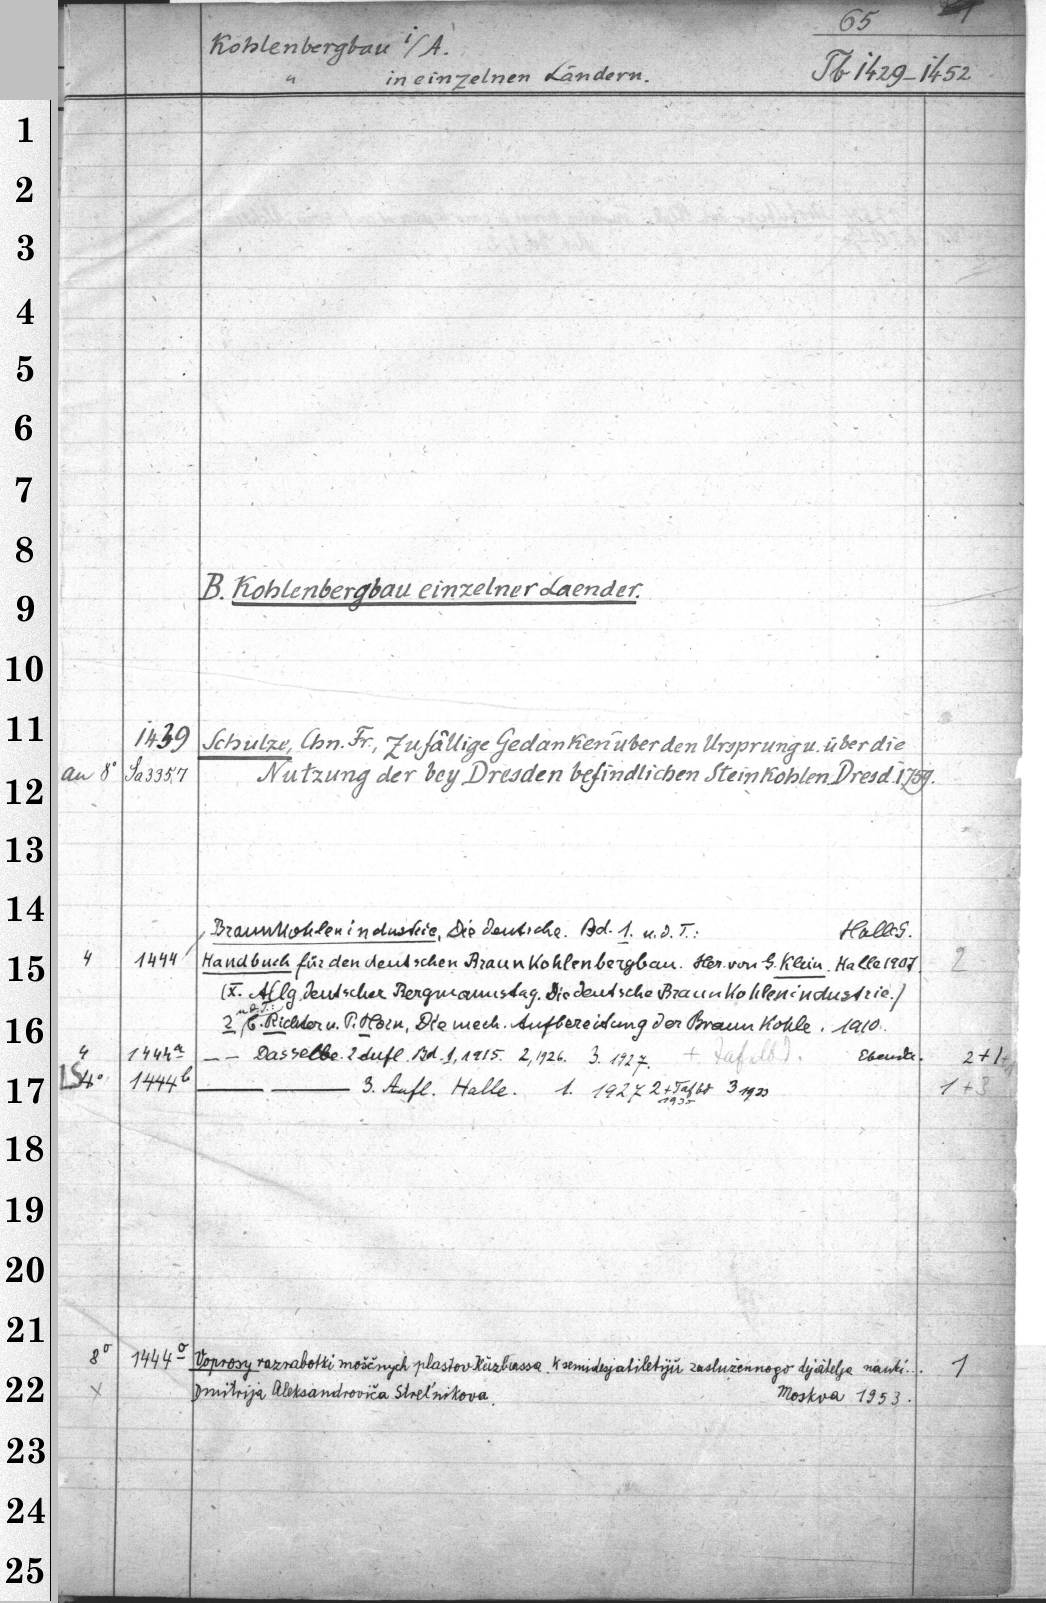 65
Kohlenbergbau i/A.
" in einzelnen Ländern. Tb 1429-1452
1
2
3
4
5
6
7
8
B. Kohlenbergbau einzelner Laender.
9
10
11 1439 Schulze, Chn. Fr., Zufällige Gedanken über den Ursprung u. über die
an 8° Sa 3357 Nutzung der bey Dresden befindlichen Steinkohlen. Dresd. 1759.
12
13
14
Braunkohlenindustrie, Die deutsche. Bd. 1. u. d. T.: Halle S.
15 4 1444 Handbuch für den deutschen Braunkohlenbergbau. Her. von G. Klein. Halle 1907 2
(X. Allg. deutscher Bergmannstag. Die deutsche Braunkohlenindustrie.)
u. d. T.:
16 2, C. Richter u. P. Horn, Die mech. Aufbereitung der Braunkohle. 1910.
4 1444a — — Dasselbe. 2 Aufl. Bd. 1, 1915. 2, 1926. 3. 1927. + Tafelbd. Ebenda. 2+1
17 4° 1444b —— —— 3. Aufl. Halle. 1. 1927 2 + Tafbd 3 1933 1+3
1935
18
19
20
21
8° 1444o Voprosy razrabotki moščnych plastov Kuzbassa. K semidesjatiletiju zasluzennogo dejatelja nauki... 1
22 x Dmitrija Aleksandroviča Strel'nikova. Moskva 1953.
23
24
25